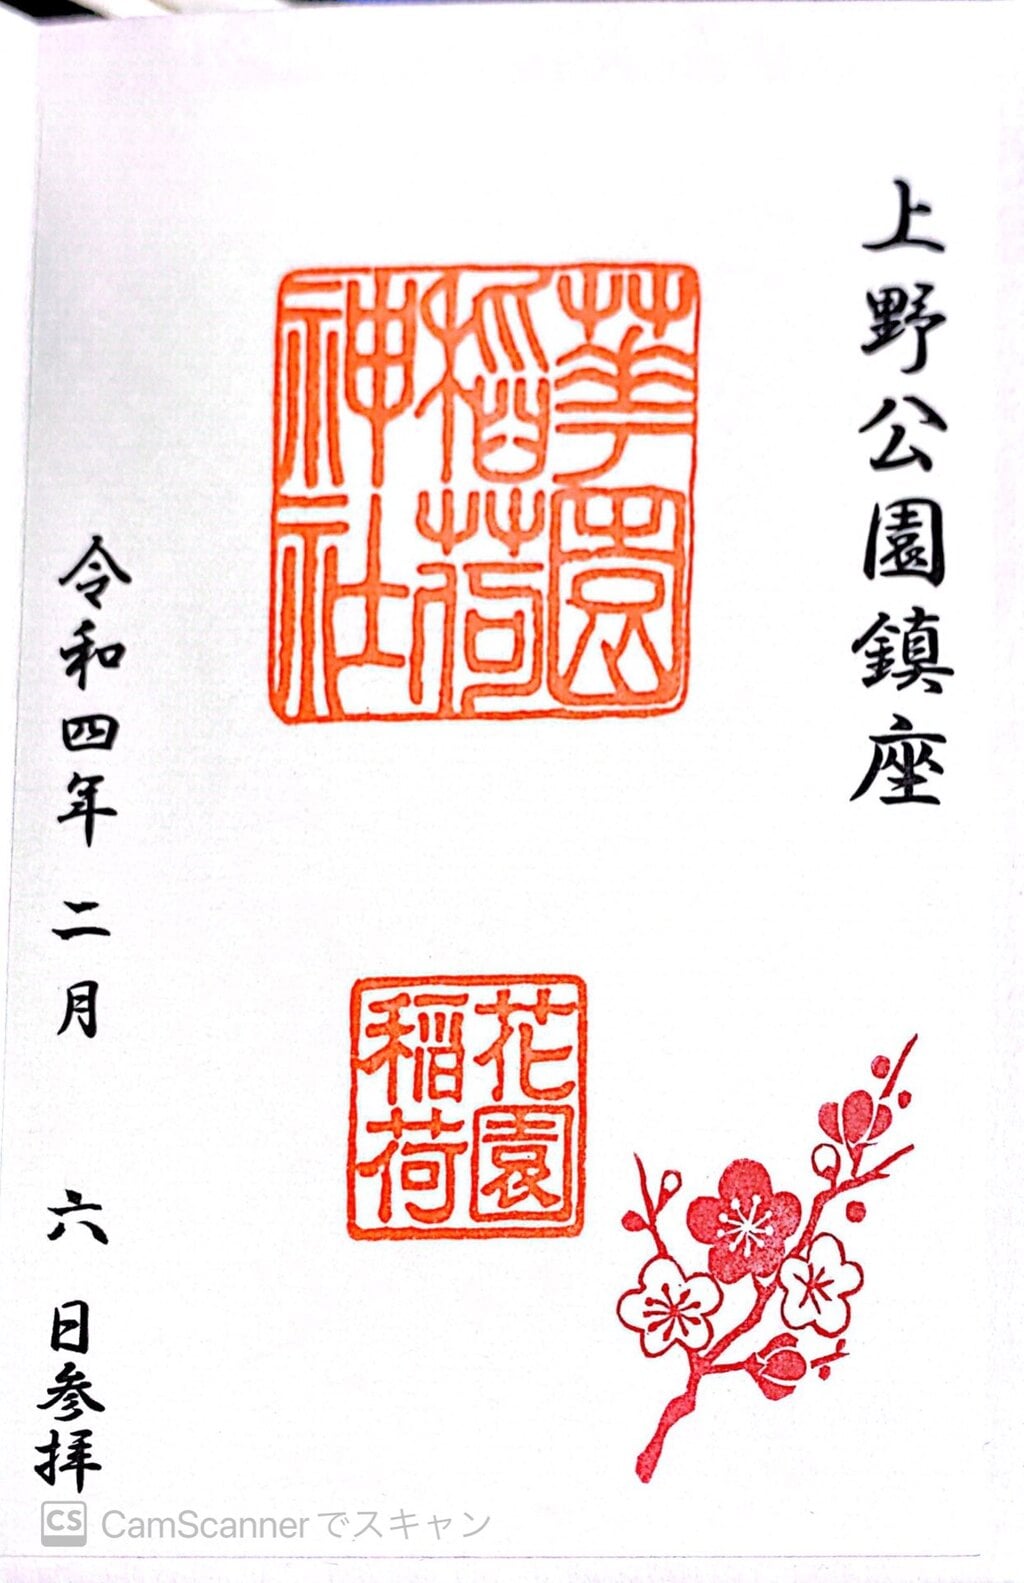 上野公園鎮座
華園
稲荷
神社
花園
稲荷
令和四年 二月 六 日参拝
CS CamScannerでスキャン